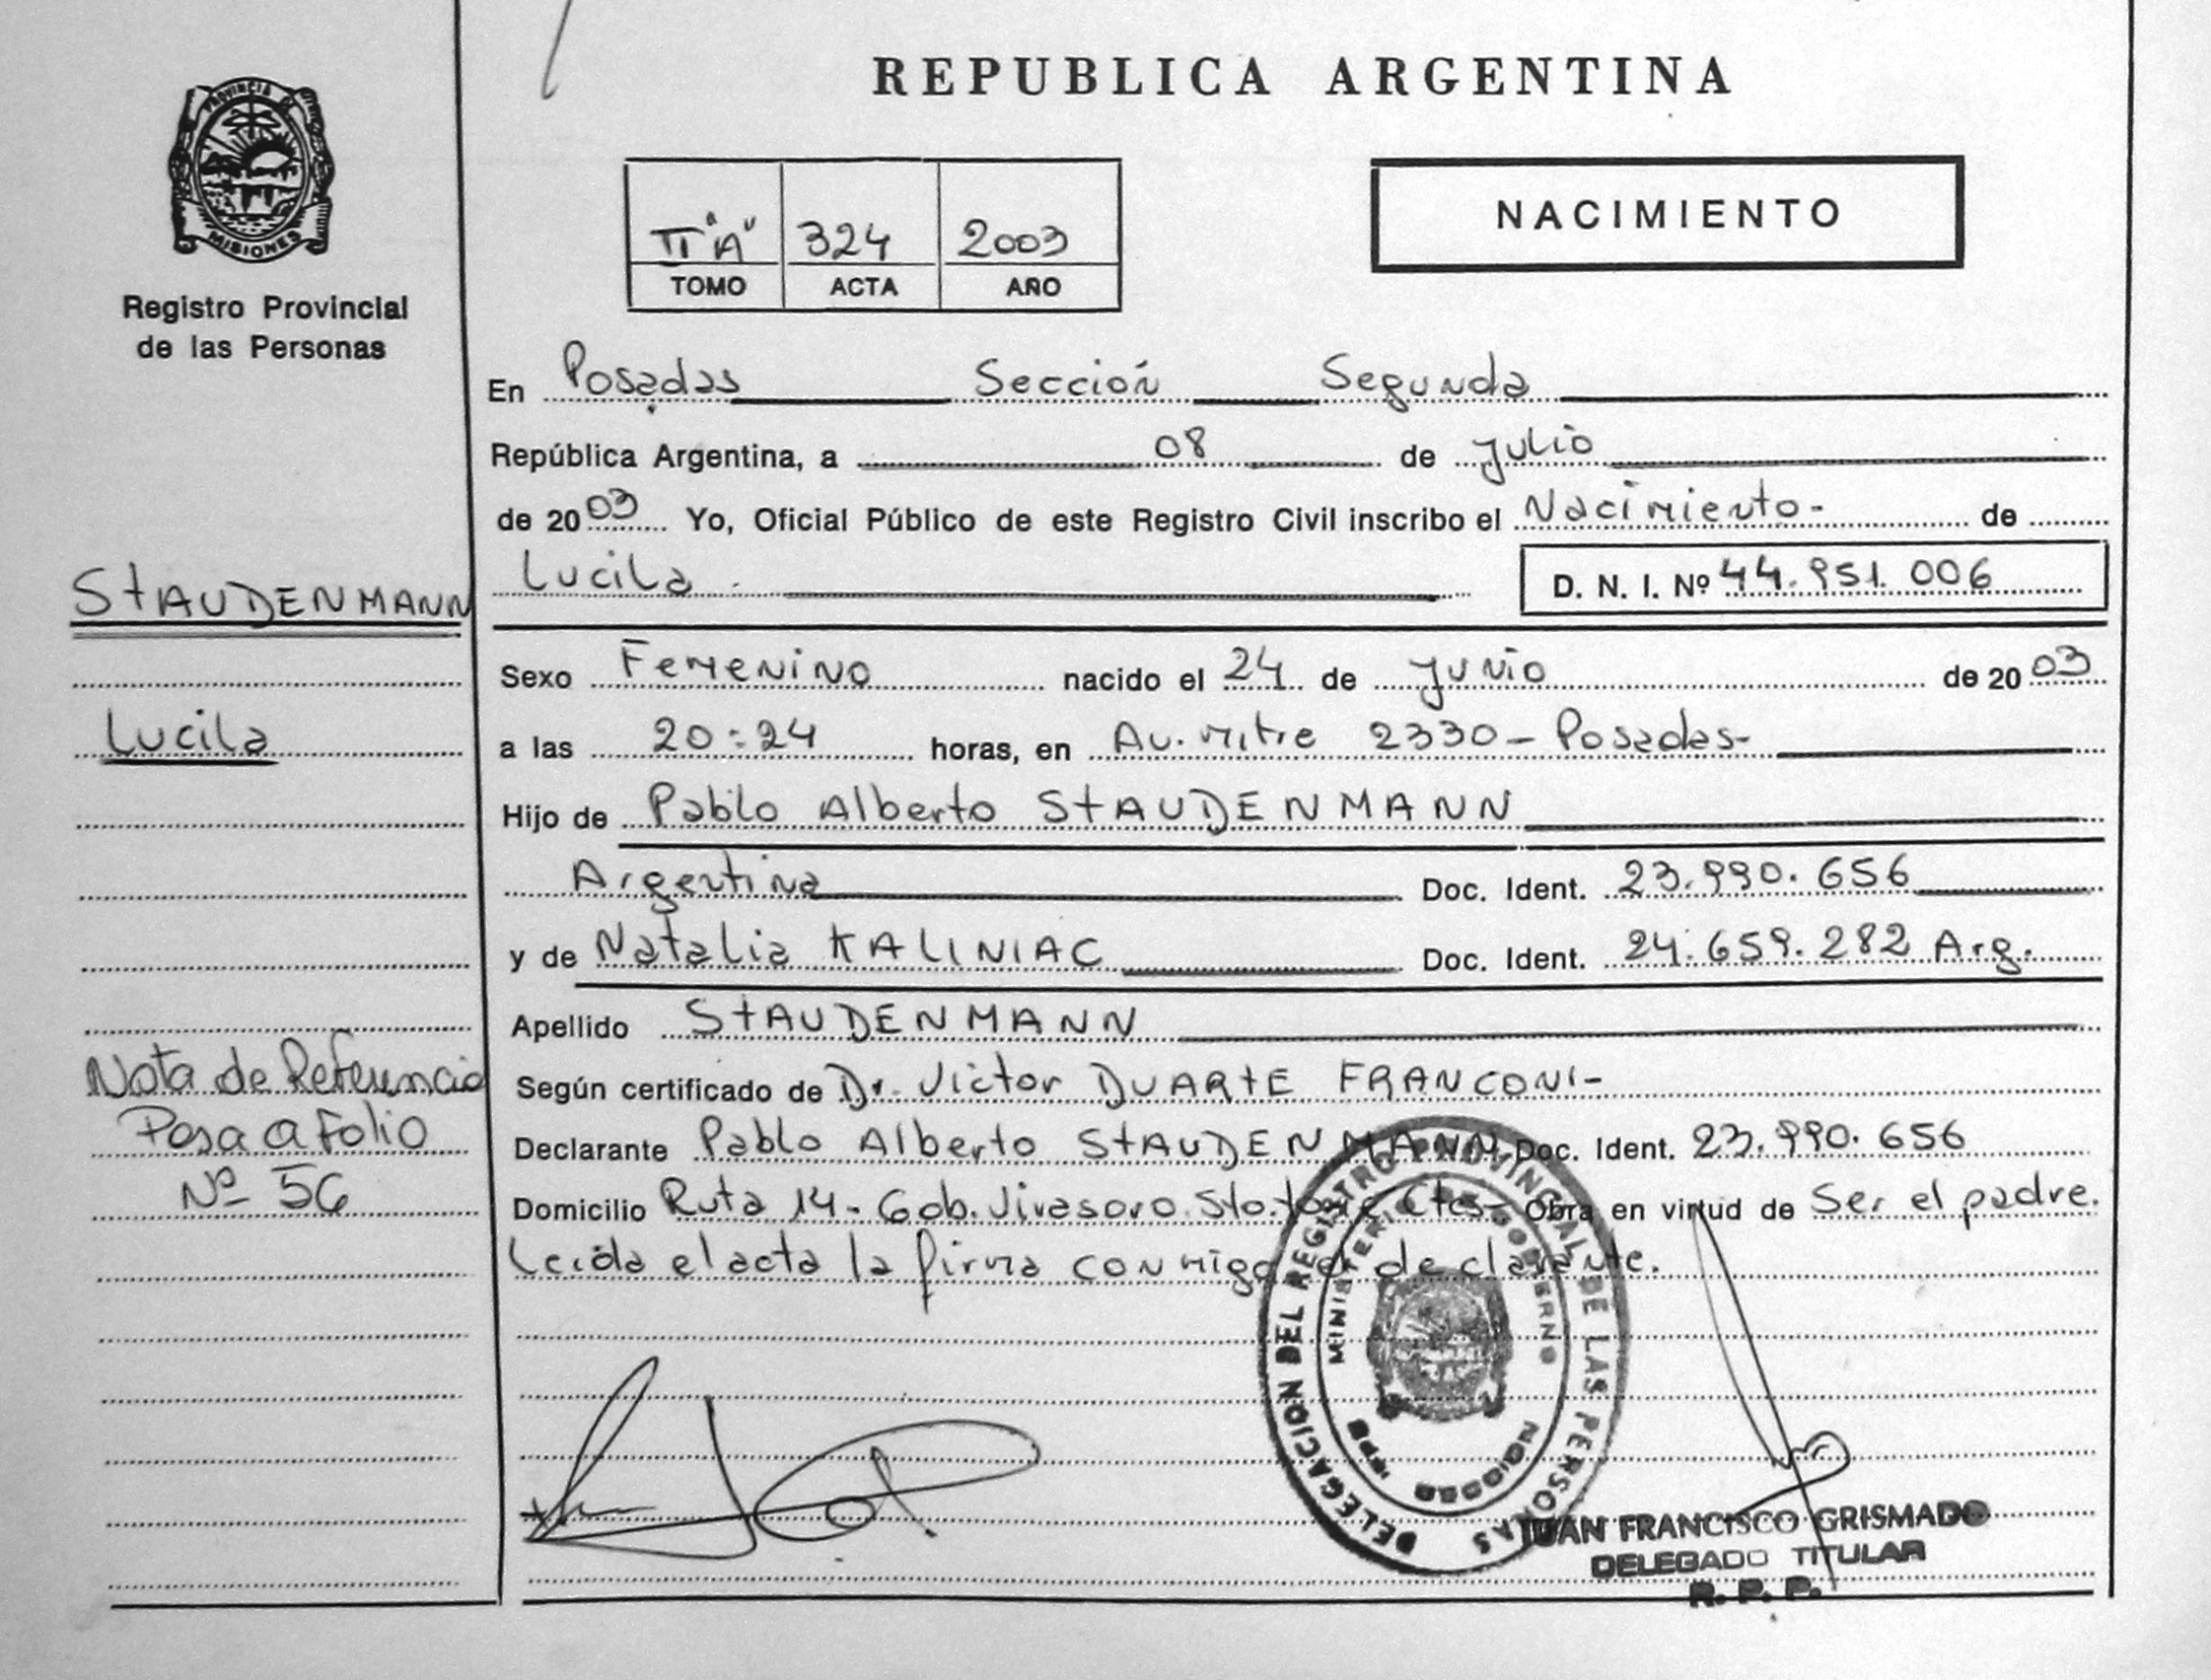 REPUBLICA ARGENTINA
PROVINCIA D
MISIONES
Registro Provincial
de las Personas
II "A" 324 2003
TOMO ACTA AÑO
NACIMIENTO
En Posadas Sección Segunda
República Argentina, a 08 de Julio
de 2003 Yo, Oficial Público de este Registro Civil inscribo el Nacimiento- de
Lucila D. N. I. Nº 44.951.006
STAUDENMANN
Lucila
Sexo Femenino nacido el 24 de Junio de 2003
a las 20:24 horas, en Av. Mitre 2330- Posadas-
Hijo de Pablo Alberto STAUDENMANN
Argentina Doc. Ident. 23.990.656
y de Natalia KALINIAC Doc. Ident. 24.659.282 Arg.
Apellido STAUDENMANN
Según certificado de Dr. Victor DUARTE FRANCONI-
Declarante Pablo Alberto STAUDENMANN Doc. Ident. 23.990.656
Domicilio Ruta 14- Gob. Virasoro. Sto. Tomé Ctes- Obra en virtud de Ser el padre.
Leida el acta la firma conmigo el declarante.
Nota de Referencia
Pasa a Folio
Nº 56
DELEGACION DEL REGISTRO PROVINCIAL DE LAS PERSONAS
MINISTERIO DE GOBIERNO
JUAN FRANCISCO GRISMADO
DELEGADO TITULAR
R. P. P.